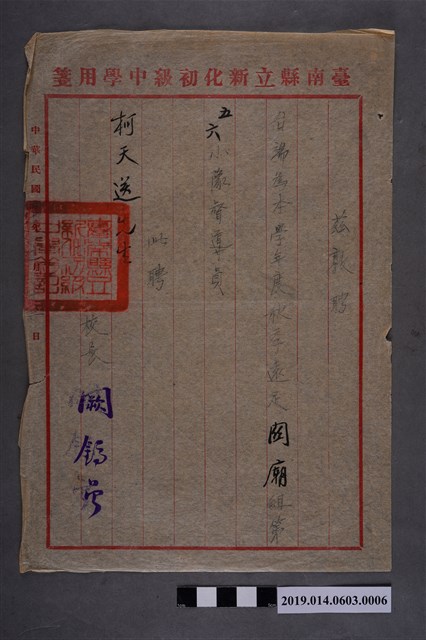 臺南縣立新化初級中學用箋
茲敦聘
台端為本學年度秋季遠足關廟組第
五六小隊督導員
此聘
柯天送先生
校長
中華民國 日
2019.014.0603.0006